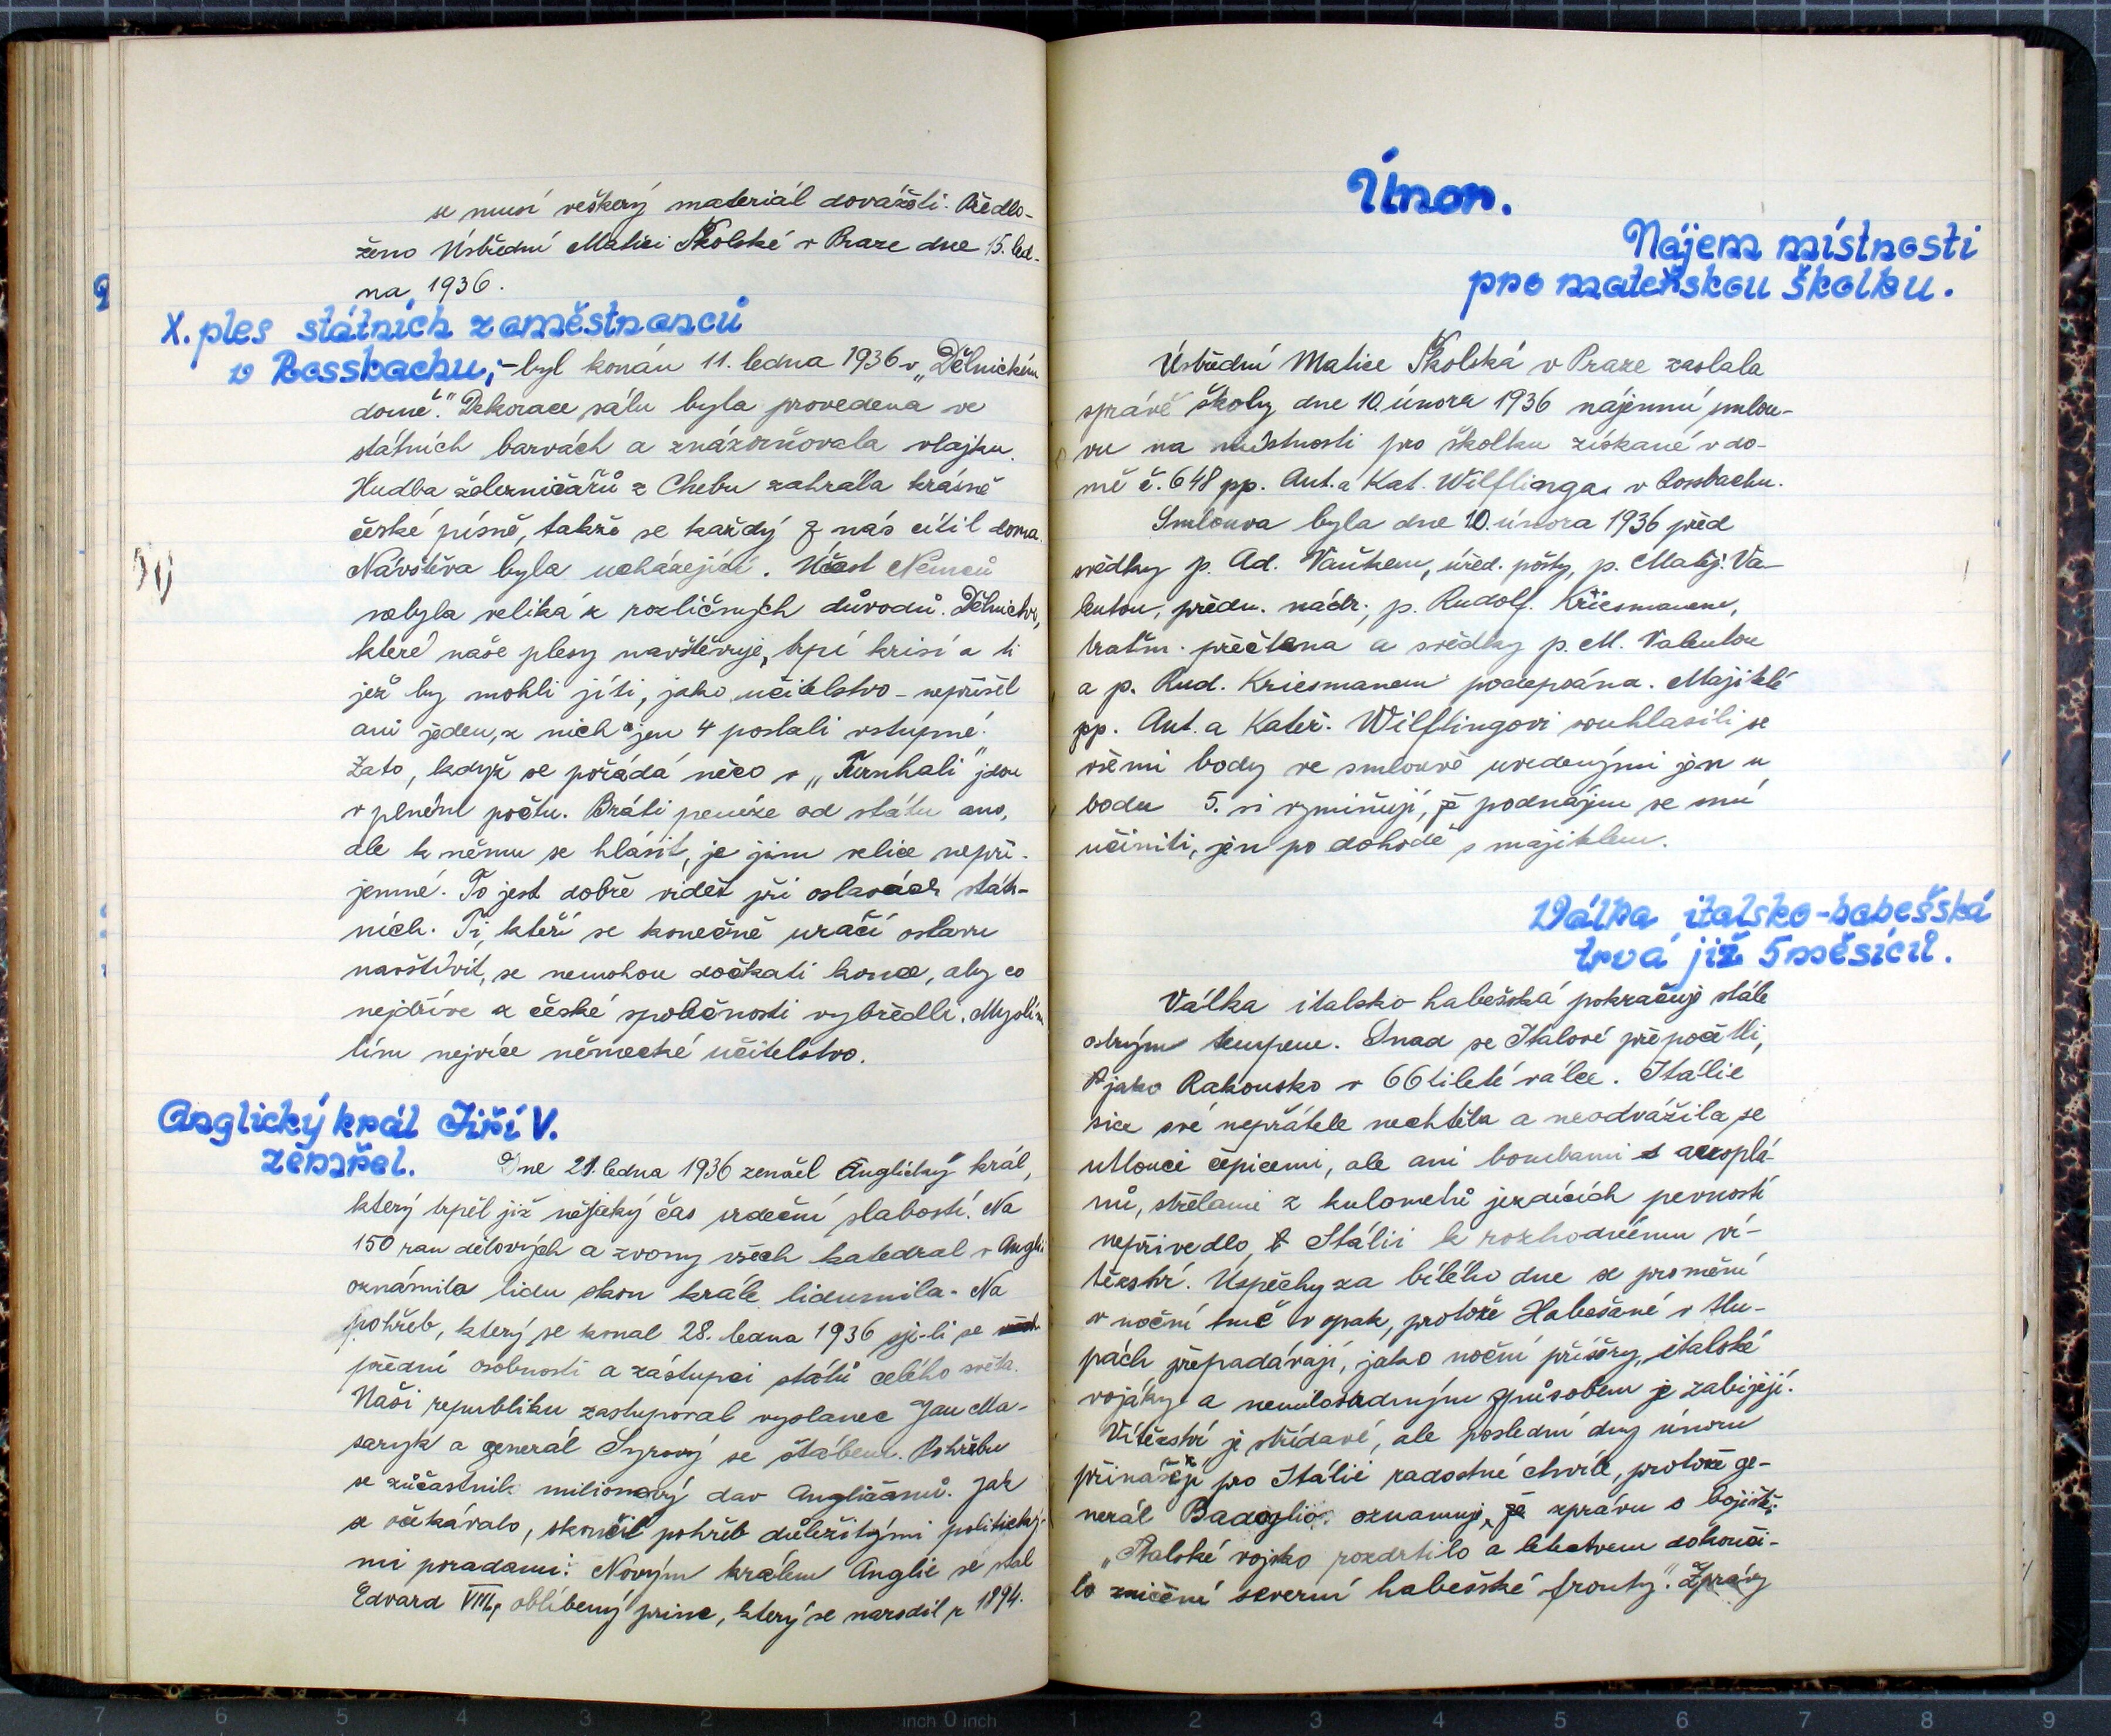 se musí veškerý materiál dovážeti. Předlo-
ženo Ústřední Matici Školské v Praze dne 15. led-
na 1936.
X. ples státních zaměstnanců
v Rossbachu; - byl konán 11. ledna 1936 v „Dělnickém
domě." Dekorace sálu byla provedena ve
státních barvách a znázorňovala vlajku.
Hudba želerničářů z Chebu zahrála krásné
české písně, takže se každý z nás cítil doma.
Návštěva byla ucházející. Účast Němců
nebyla veliká z rozličných důvodů. Dělnictvo,
které naše plesy navštěvuje, trpí krisí a ti
jež by mohli jíti, jako učitelstvo - nepřišel
ani jeden, z nich jen 4 poslali vstupné.
Zato, když se pořádá něco v „Turnhali" jdou
v plném počtu. Bráti peníze od státu ano,
ale k němu se hlásit, je jim velice nepří-
jemné. To jest dobře vidět při oslavách stát-
ních. Ti, kteří se konečně uráčí oslavu
navštívit, se nemohou dočkati konce, aby co
nejdříve z české společnosti vybředli. Myslím
tím nejvíce německé učitelstvo.
Anglický král Jiří V.
zemřel.
Dne 21. ledna 1936 zemřel Anglický král,
který trpěl již nějaký čas srdeční slabostí. Na
150 ran dělových a zvony všech katedral v Anglii
oznámila lidu skon krále lidumila. Na
pohřeb, který se konal 28. ledna 1936 sje-li se
přední osobnosti a zástupci států celého světa.
Naši republiku zastupoval vyslanec Jan Ma-
saryk a generál Syrový se štábem. Pohřbu
se zúčastnil milionový dav Angličanů. Jak
se očekávalo, skončil pohřeb důležitými politický-
mi poradami: Novým králem Anglie se stal
Edvard VIII, oblíbený princ, který se narodil r 1894.
Únor.
Nájem místnosti
pro mateřskou školku.
Ústřední Matice Školská v Praze zaslala
správě školy dne 10. února 1936 nájemní smlou-
vu na místnosti pro školku získané v do-
mě č. 648 pp. Ant. a Kat. Wilflinga v Rossbachu.
Smlouva byla dne 10. února 1936 před
svědky p. Ad. Vaňkem, úřed. pošty, p. Matěj. Va-
lentou, předn. nádr., p. Rudolf. Kriesmanem,
traťm. přečtena a svědky p. M. Valentou
a p. Rud. Kriesmanem podepsána. Majitelé
pp. Ant. a Kateř. Wilflingovi souhlasili se
všemi body ve smlouvě uvedenými jen u
bodu 5. si vymiňují, že podnájem se smí
učiniti, jen po dohodě s majitelem.
Válka italsko-habešská
trvá již 5 měsíců.
Válka italsko-habešská pokračuje stále
ostrým tempem. Snad se Italové přepočetli,
jako Rakousko v 66tileté válce. Itálie
sice své nepřátele nechtěla a neodvážila se
utlouci čepicemi, ale ani bombami s aeroplá-
nů, střelami z kulometů jezdících pevností
nepřivedlo Itálii k rozhodnému ví-
tězství. Úspěchy za bílého dne se promění
v noční tmě v opak, protože Habešané v tlu-
pách přepadávají, jako noční příšery, italské
vojáky a nemilosrdným způsobem je zabíjejí.
Vítězství je střídavé, ale poslední dny únoru
přinášejí pro Itálii radostné chvíle, protože ge-
nerál Badoglio oznamuje zprávu s bojiště:
„Italské vojsko rozdrtilo a letectvem dokonči-
lo zničení severní habešské fronty." Zprávy